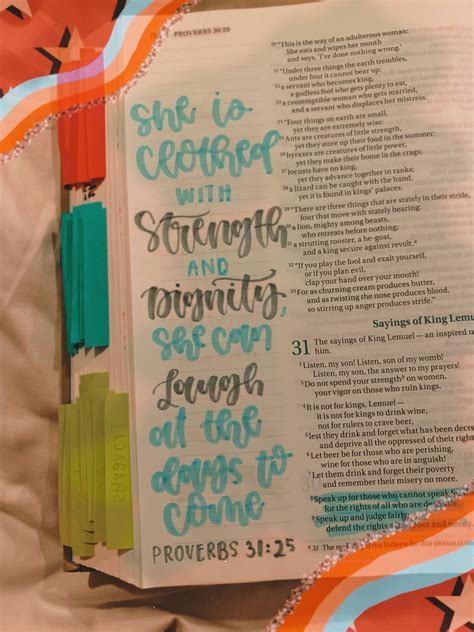 PROVERBS 30:20
she is
clothed
WITH
strength
AND
Dignity,
she can
laugh
at the
days to
come
PROVERBS 31:25
Proverbs
20 "This is the way of an adulterous woman:
She eats and wipes her mouth
and says, 'I've done nothing wrong.'
21 "Under three things the earth trembles,
under four it cannot bear up:
22 a servant who becomes king,
a godless fool who gets plenty to eat,
23 a contemptible woman who gets married,
and a servant who displaces her mistress.
24 "Four things on earth are small,
yet they are extremely wise:
25 Ants are creatures of little strength,
yet they store up their food in the summer;
26 hyraxes are creatures of little power,
yet they make their home in the crags;
27 locusts have no king,
yet they advance together in ranks;
28 a lizard can be caught with the hand,
yet it is found in kings' palaces.
29 "There are three things that are stately in their stride,
four that move with stately bearing:
30 a lion, mighty among beasts,
who retreats before nothing;
31 a strutting rooster, a he-goat,
and a king secure against revolt.
32 "If you play the fool and exalt yourself,
or if you plan evil,
clap your hand over your mouth!
33 For as churning cream produces butter,
and as twisting the nose produces blood,
so stirring up anger produces strife."
Sayings of King Lemuel
31 The sayings of King Lemuel—an inspired
him.
2 Listen, my son! Listen, son of my womb!
Listen, my son, the answer to my prayers!
3 Do not spend your strength on women,
your vigor on those who ruin kings.
4 It is not for kings, Lemuel—
it is not for kings to drink wine,
not for rulers to crave beer,
5 lest they drink and forget what has been
and deprive all the oppressed of their
6 Let beer be for those who are perishing,
wine for those who are in anguish!
7 Let them drink and forget their poverty
and remember their misery no more.
8 Speak up for those who cannot speak
for the rights of all who are
9 Speak up and judge fairly;
defend the rights